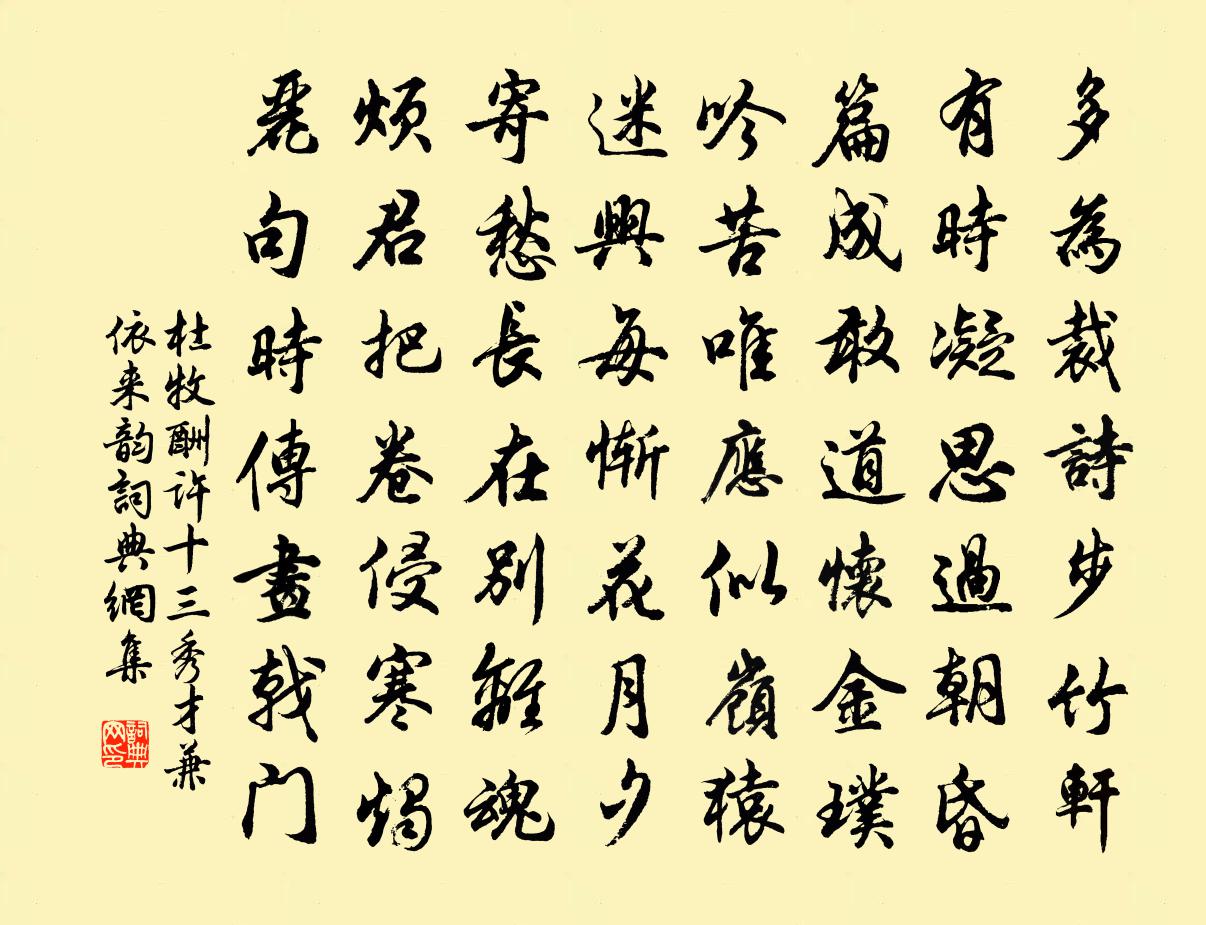 多為裁詩步竹軒
有時凝思過朝昏
篇成敢道懷金璞
吟苦唯應似嶺猿
迷興每慚花月夕
寄愁長在別離魂
煩君把卷侵寒燭
麗句時傳畫戟門
杜牧酬许十三秀才兼
依来韵詞典網集
詞典
网印